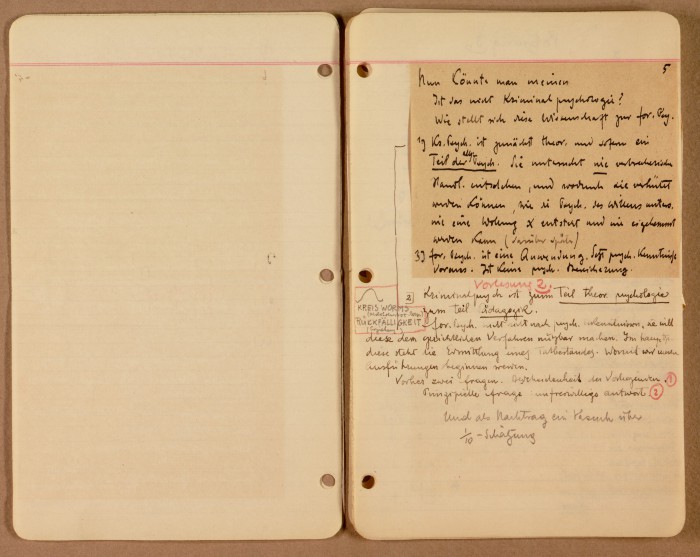 5
Nun könnte man meinen
Ist das nicht Kriminalpsychologie?
Wie stellt sich diese Wissenschaft zur for. Psy.
1) Kr. Psych. ist zunächst theor. und sofern ein
Teil der allg. Psych. Sie untersucht wie verbrecherische
Handl. entstehen, und wodurch sie verhütet
werden können, wie die Psych. des Willens unters.
wie eine Wollung x entsteht und wie sie gehemmt
werden kann (darüber später)
3) for. Psych. ist eine Anwendung. Setzt psych. Kenntnisse
voraus. Ist keine psych. Bereicherung.
Vorlesung 2.
2
Kriminalpsych ist zum Teil theor. psychologie
zum Teil Pädagogik.
KREIS WORMS
RÜCKFÄLLIGKEIT
for. Psych. will nicht nach psych. Erkenntnissen, sie will
diese dem gerichtlichen Verfahren nutzbar machen. Im
diese steht die Ermittlung eines Tatbestandes. Womit wir unsere
Ausführungen beginnen werden.
Vorher zwei Fragen. Bescheidenheit des 1
Prinzipielle Frage unfreiwillige Antwort. 2
Und als Nachtrag ein Versuch über
1/10 - Schätzung